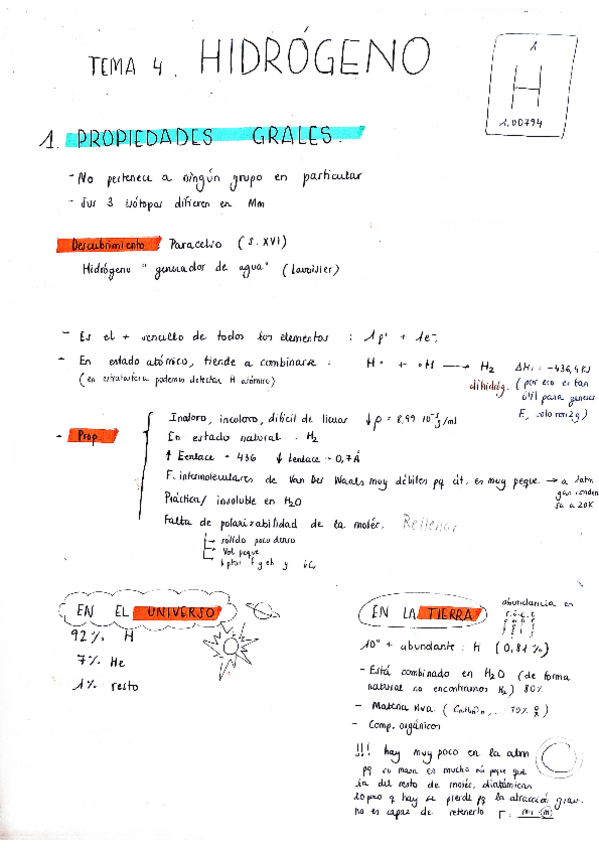 TEMA 4. HIDRÓGENO
1
H
1.00794
1. PROPIEDADES GRALES.
- No pertenece a ningún grupo en particular
- Sus 3 isótopos difieren en Mm
Descubrimiento: Paracelso (s. XVI)
Hidrógeno "generador de agua" (Lavoisier)
- Es el + sencillo de todos los elementos : 1p+ + 1e-.
- En estado atómico, tiende a combinarse : H· + ·H → H2 ΔH: -436,4 KJ
(en estratosfera podemos detectar H atómico)
dihidróg.
(por eso es tan
útil para generar
E, solo con 2g)
- Prop.
Inodoro, incoloro, difícil de licuar ↓ρ = 8,99·10-5 g/ml
En estado natural : H2
↑ Eenlace = 436 ↓ lenlace = 0,7Å
F. intermoleculares de Van Der Waals muy débiles pq át. es muy peque → a 1atm
gas conden
sa a 20K
Práctica/ insoluble en H2O
Falta de polarizabilidad de la moléc. Rellenar
↳ sólido poco denso
↳ Vol peque
EN EL UNIVERSO
92% H
7% He
1% resto
EN LA TIERRA
abundancia en
10º + abundante : H (0,81%)
- Está combinado en H2O (de forma
natural no encontramos H2) 80%
- Materia viva
- Comp. orgánicos
!!! hay muy poco en la atm
pq su masa es mucho más peque que
la del resto de moléc. diatómicas
lo poco q hay se pierde pq la atracción grav.
no es capaz de retenerlo